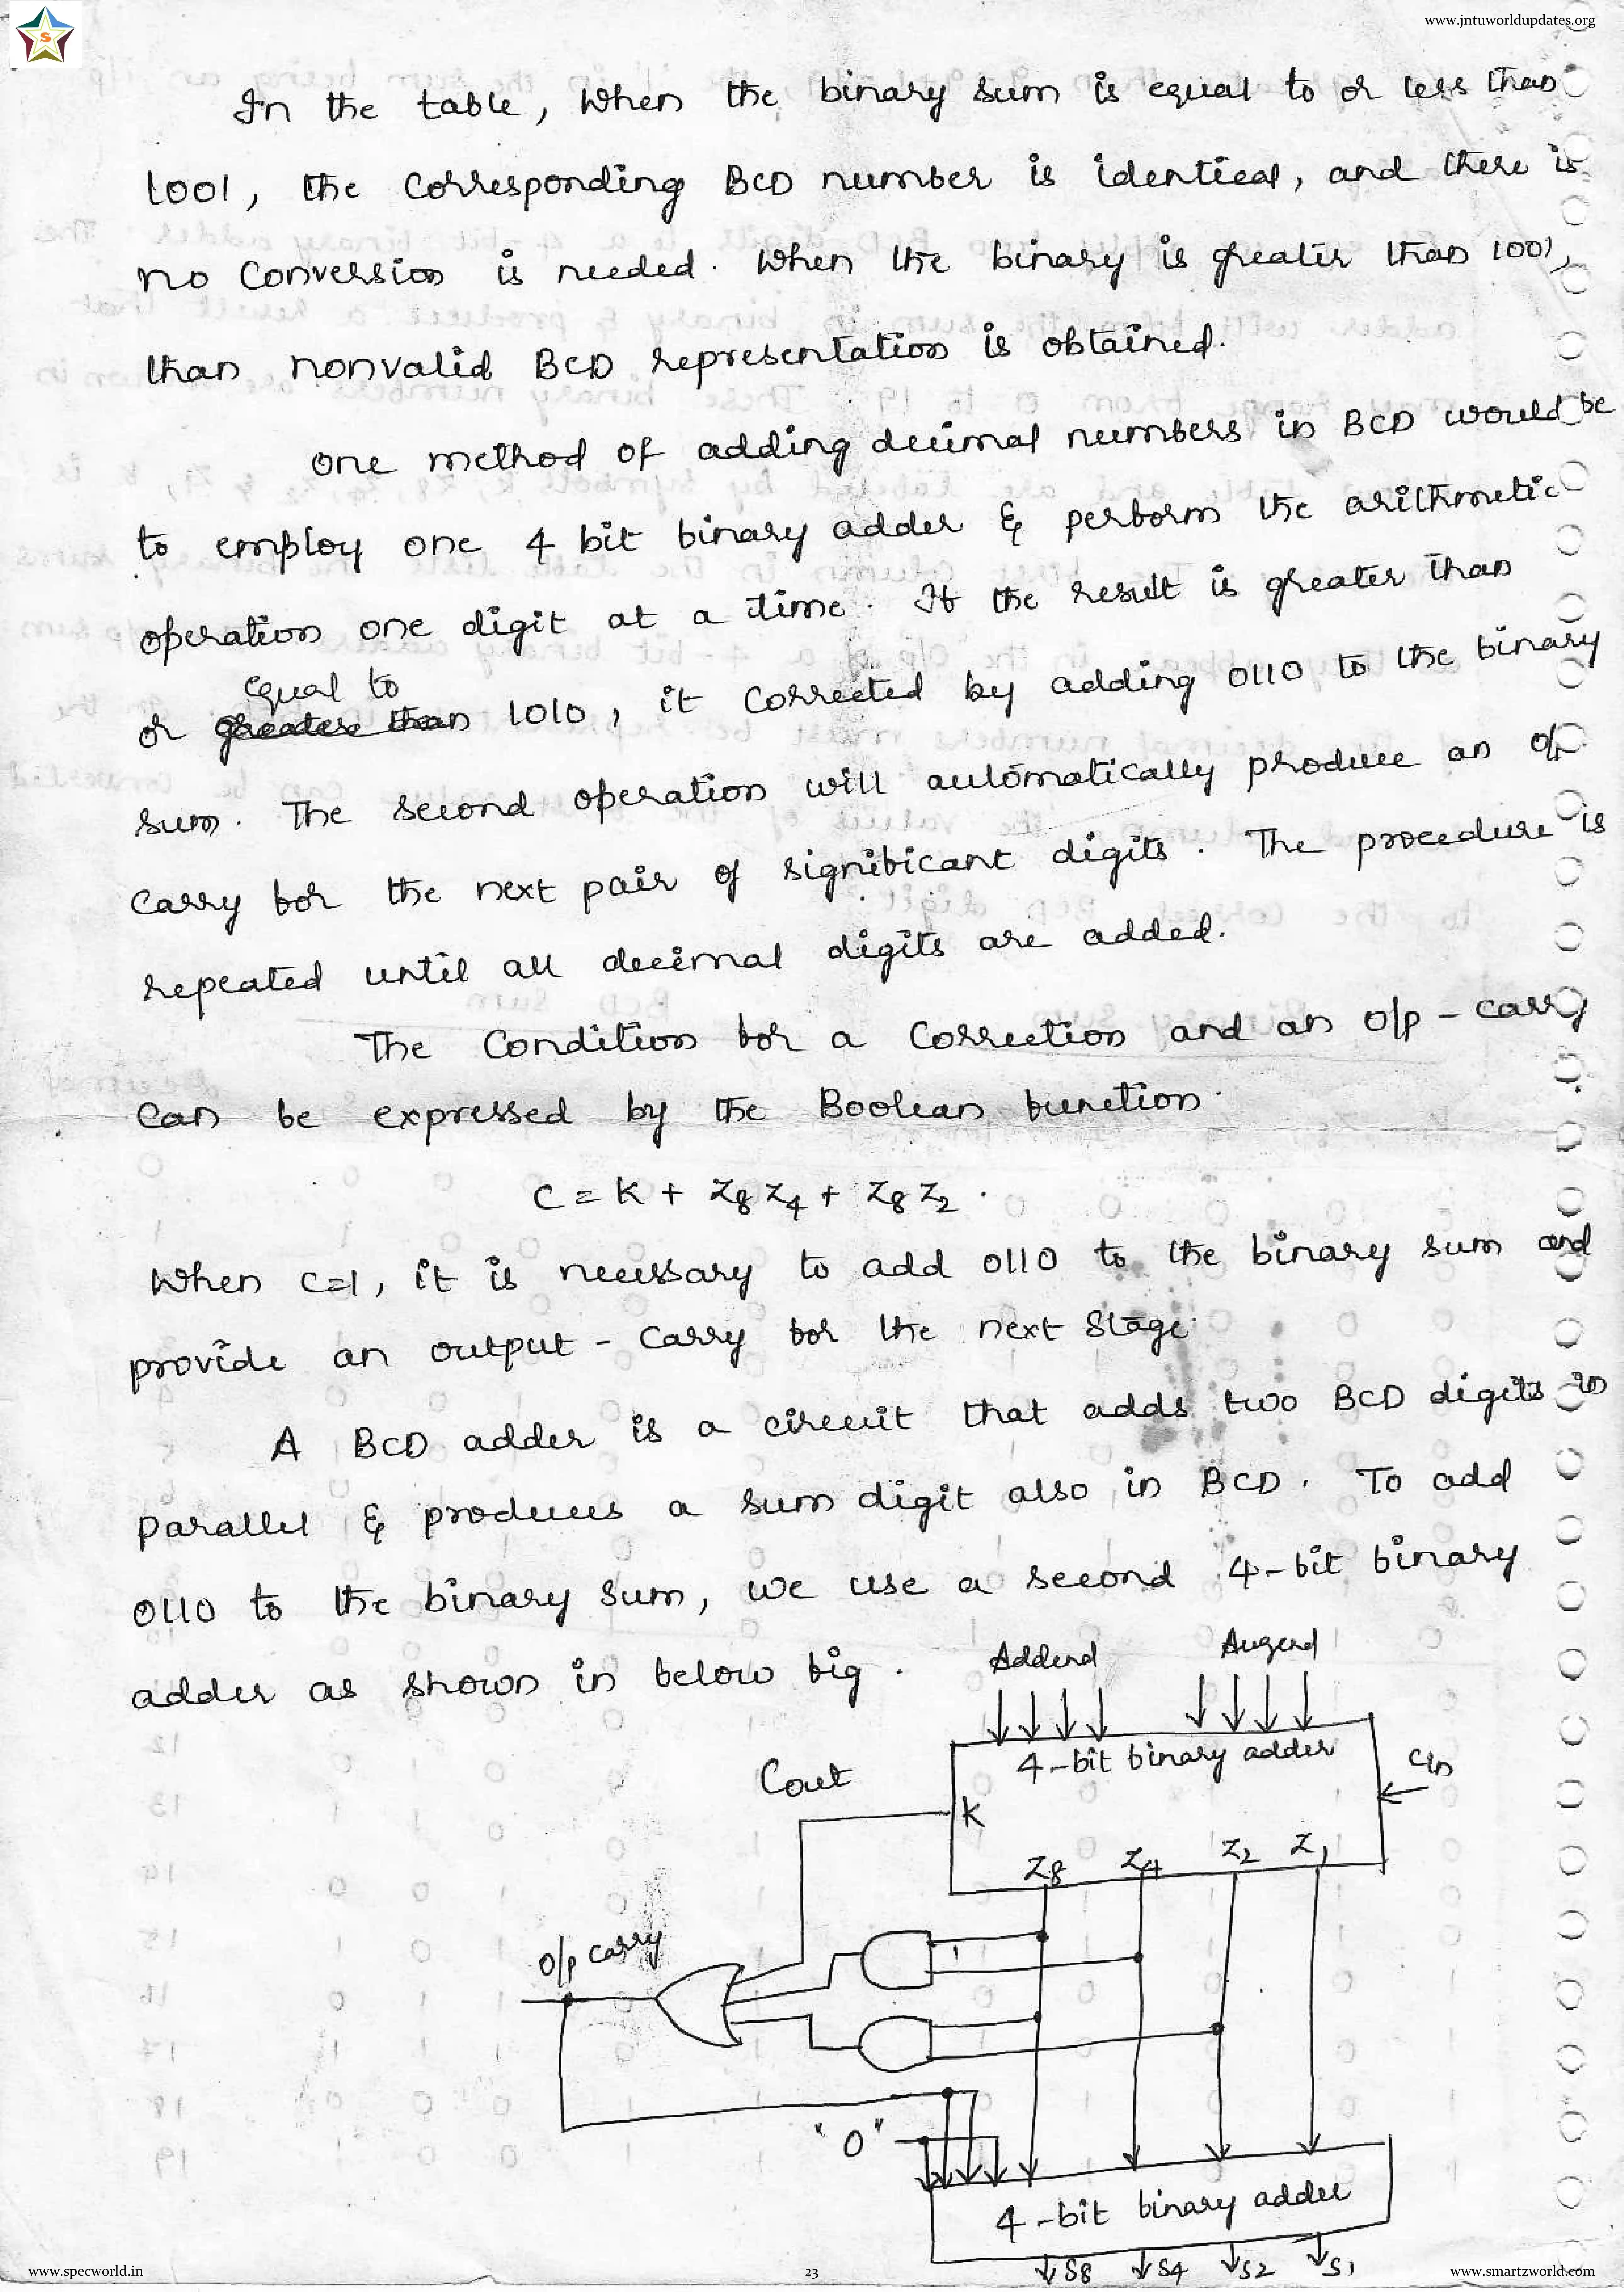 www.jntuworldupdates.org
In the table, When the binary sum is equal to or less than
1001, the Corresponding BCD number is identical, and there is
no Conversion is needed. When the binary is greater than 1001,
than nonvalid BCD representation is obtained.
One method of adding decimal numbers in BCD would be
to employ one 4 bit binary adder & perform the arithmetic
operation one digit at a time. If the result is greater than
equal to
or greater than 1010, it Corrected by adding 0110 to the binary
sum. The second operation will automatically produce an o/p
carry for the next pair of significant digits. The procedure is
repeated until all decimal digits are added.
The Condition for a Correction and an o/p - carry
Can be expressed by the Boolean function.
C = K + Z8 Z4 + Z8 Z2.
When C=1, it is necessary to add 0110 to the binary sum and
provide an output - Carry for the next Stage.
A BCD adder is a circuit that adds two BCD digits in
Parallel & produces a sum digit also in BCD. To add
0110 to the binary sum, we use a second 4-bit binary
adder as shown in below fig.
Addend Augend
4-bit binary adder
Cout
Cin
K
Z8 Z4 Z2 Z1
o/p carry
"0"
4-bit binary adder
S8 S4 S2 S1
www.specworld.in
23
www.smartzworld.com